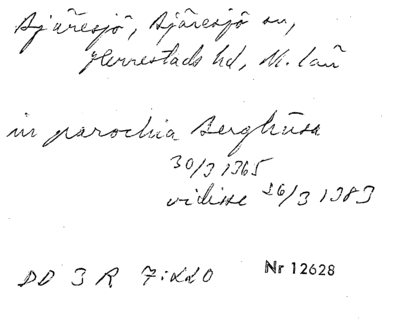 Bjäresjö, Bjäresjö sn,
Herrestads hd, M. län
in parochia Berghusa
30/3 1365
vidisse 26/3 1383
DD 3 R 7:220 Nr 12628